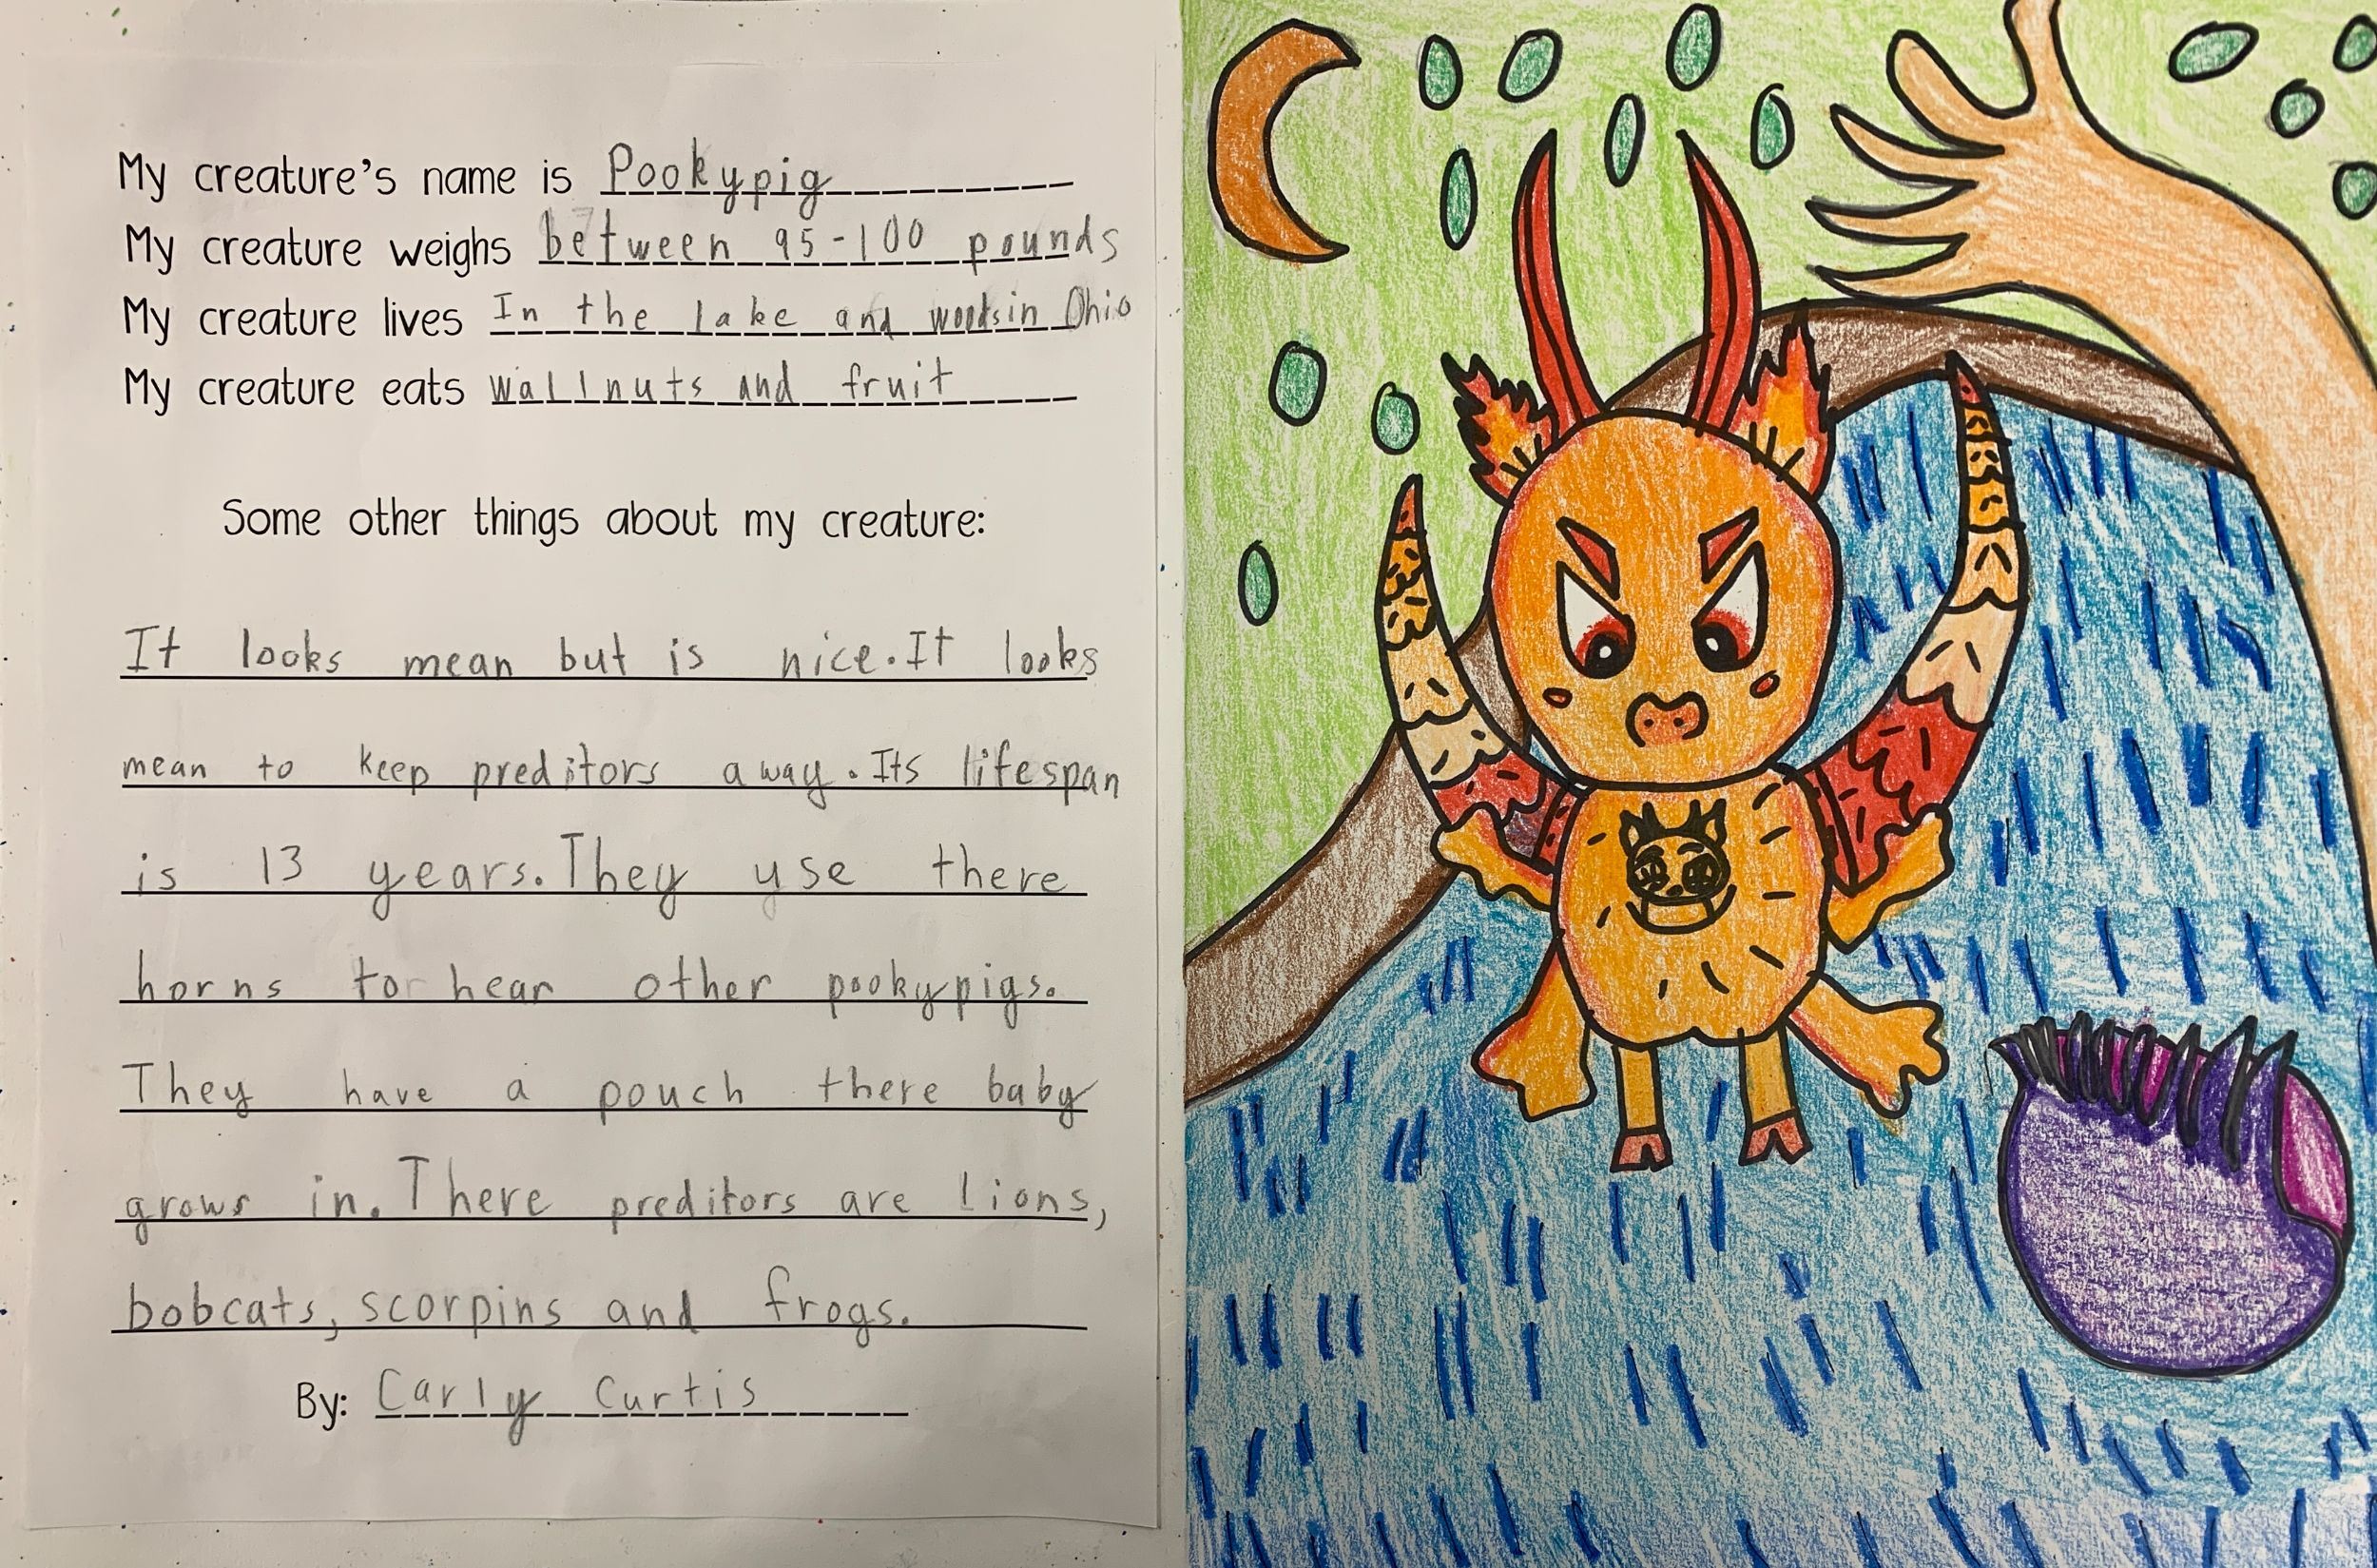 My creature's name is Pookypig
My creature weighs between 95-100 pounds
My creature lives In the lake and woods in Ohio
My creature eats wallnuts and fruit
Some other things about my creature:
It looks mean but is nice. It looks
mean to keep preditors away. Its lifespan
is 13 years. They use there
horns to hear other pookypigs.
They have a pouch there baby
grows in. There preditors are Lions,
bobcats, scorpins and frogs.
By: Carly Curtis